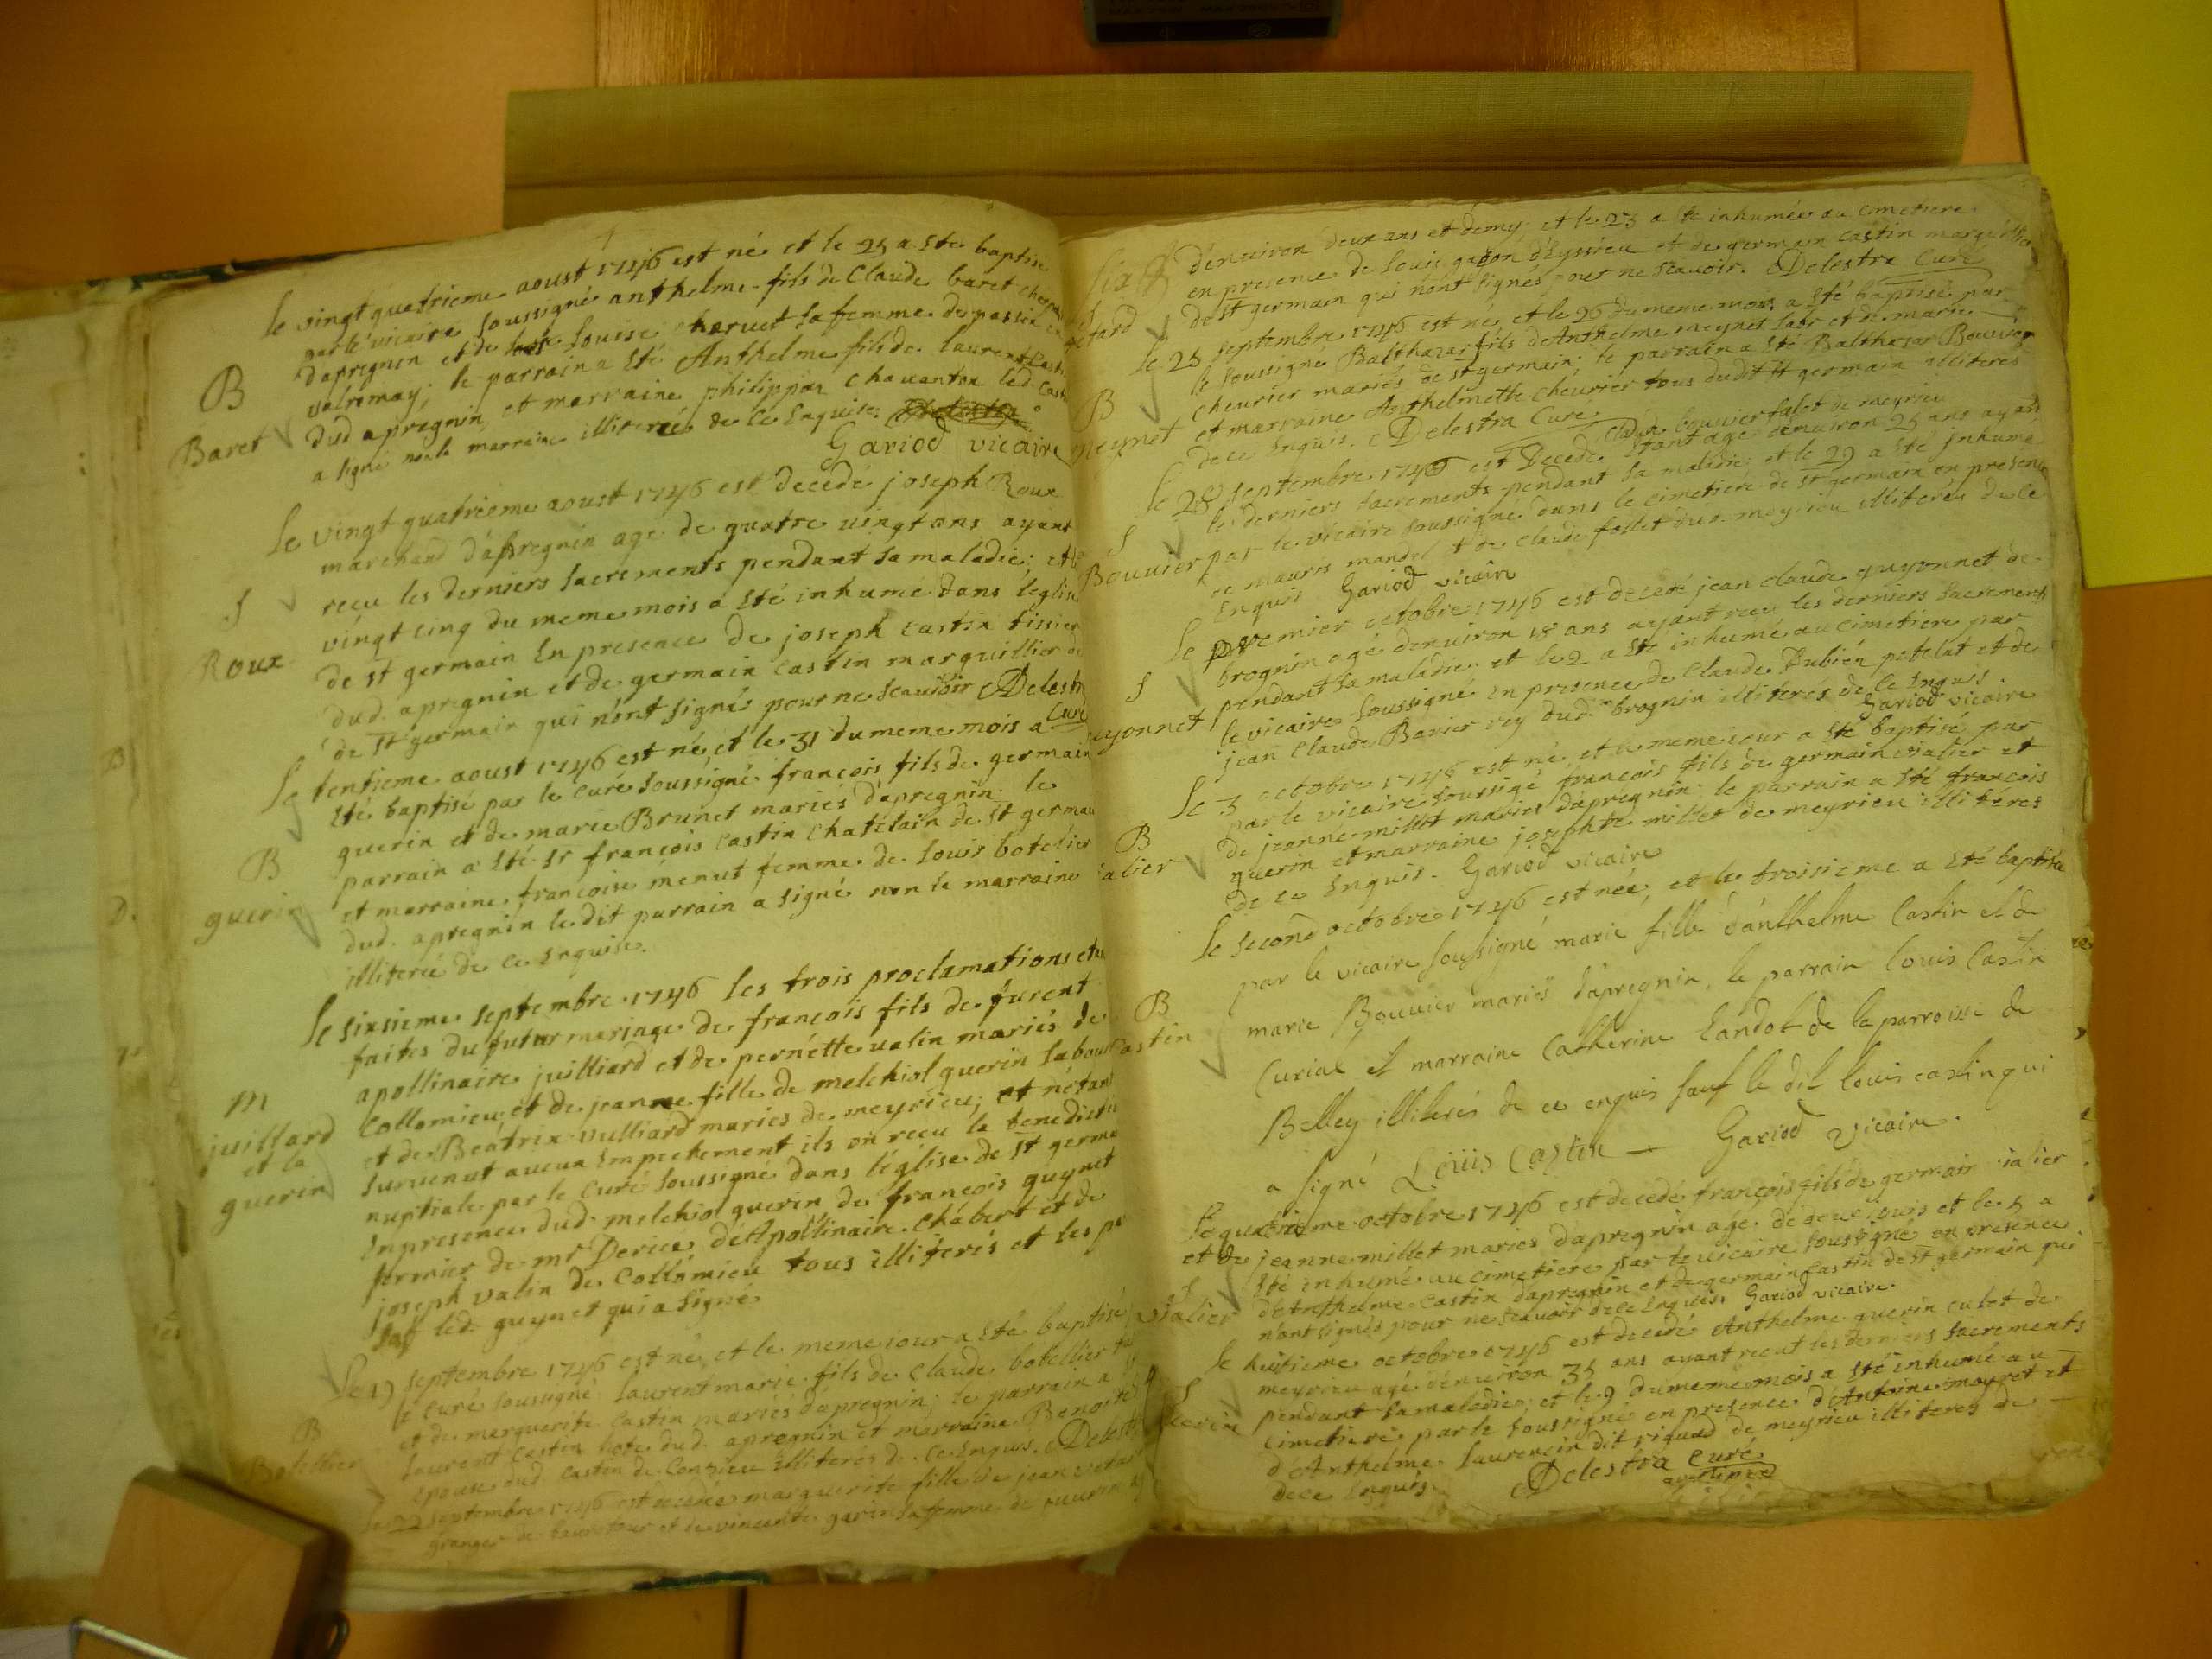 le vingt quatrieme aoust 1746 est né et le 25 a Ste baptisé
par le vicaire soussigné anthelme fils de Claude baret
dapregnin et de Louise charvet sa femme de
valromay; le parrain a Sté Anthelme fils de laurent
B
Baret
dud apregnin et marraine philippine chavantra led.
a signé non la marraine illiterée de ce Enquise.
Gariod vicaire
Le vingt quatrieme aoust 1746 est decedé joseph Roux
marchand d'apregnin age de quatre vingt ans ayant
S
Roux
reçu les derniers sacrements pendant sa maladie; et le
vingt cinq du meme mois a Sté inhumé dans leglise
de st germain En presence de joseph castin tissier
dud. apregnin et de germain castin marguillier de
de st germain qui n'ont signés pour ne scauoir Delestra
Curé
Le trentieme aoust 1746 est né et le 31 du meme mois a
Sté baptisé par le curé soussigné françois fils de germain
B
guerin
guerin et de marie Brunet mariés d'apregnin. le
parrain a Sté sr françois castin chatelain de st germain
et marraine françoise menut femme de louis botelier
dud. apregnin le dit parrain a signé non la marraine
illiterée de ce Enquise.
Le sixsieme septembre 1746 les trois proclamations etant
faites du futur mariage de françois fils de furent
m
juillard
et la
guerin
apollinaire juilliard et de pernette valin mariés de
Collomieu; et de jeanne fille de melchiol guerin
et de Beatrix vulliard mariés de meyrieu; et n'etant
survenut aucun Empechement ils on reçu la benediction
nuptiale par le Curé soussigné dans l'église de st germain
En presence dud. melchiol guerin de françois guynet
fermier de mr Derice, d'Apollinaire Chabert et de
joseph valin de Collomieu tous illiterés et les
sauf led. guynet qui a signé
Le 19 septembre 1746 est né, et le meme iour a Sté baptisé
le curé soussigné laurent marie fils de claude botellier
B
Botellier
et de marguerite castin mariés dapregnin; le parrain a
laurent castin hote dud. apregnin et marraine Benoite
epouse dud castin de Conzieu illiterés de ce Enquis. Delestra
le 22 septembre 1746 est decedée marguerite fille de jean
granger de et de vincente garin sa femme de
d'enuiron deux ans et demy; et le 23 a Sté inhumée au cimetiere
en presence de louis gadon d'Eyssieu et de germain castin marguillier
de st germain qui n'ont signés pour ne scauoir. Delestra Curé
le 25 septembre 1746 est né, et le 26 du meme mois a Sté baptisé par
le soussigné Balthazar fils de Anthelme meynet labr et de marie
B
meynet
cheurier mariés de st germain; le parrain a Sté Balthazar Bouvier
et marraine Anthelmette cheurier tous dudit st germain illiteres
de ce Enquis. Delestra Curé
Claude bouvier falet de meyrieu
le 28 septembre 1746 est Decedé Etant agé denuiron 25 ans ayant
les derniers sacrements pendant sa maladie; et le 29 a Sté Inhumé
S
Bouvier
par le vicaire soussigné dans le cimetiere de st germain en presence
de mauris mandel et de claude follet dud. meyrieu illiterés de ce
Enquis Gariod vicaire
Le premier octobre 1746 est decedé jean claude guyonnet de
brognin agé denuiron 18 ans ayant reçu les derniers sacrements
S
guyonnet
pendant sa maladie et le 2 a Sté inhumé au cimetiere par
le vicaire soussigné en presence de Claude Rubién patelat et de
jean claude Barier rey dud. brognin illiterés de ce Enquis
Gariod vicaire
Le 3 octobre 1746 est né, et le meme iour a Sté baptisé par
par le vicaire soussigné françois fils de germain vialier et
B
vialier
de jeanne millet mariés dapregnin; le parrain a Sté françois
guerin et marraine josephte millet de meyrieu illiteres
de ce Enquis. Gariod vicaire
le second octobre 1746 est née, et le troisieme a Sté baptisée
par le vicaire soussigné marie fille d'anthelme Castin et de
B
Castin
marie Bouvier mariés d'apregnin, le parrain louis Castin
Curial et marraine Catherine Landot de la parroisse de
Belley illiterés de ce enquis sauf le dit louis castin qui
a signé Loüis Castin Gariod vicaire.
le quatrieme octobre 1746 est decedé françois fils de germain vialier
et de jeanne millet mariés dapregnin agé de deux iours et le 5 a
S
vialier
Sté inhumé au cimetiere par le vicaire soussigné en presence
de anthelme castin dapregnin et de germain castin de st germain qui
n'ont signés pour ne scauoir de ce Enquis. Gariod vicaire.
le huitieme octobre 1746 est decedé Anthelme guerin culet de
meyrieu agé denuiron 35 ans ayant recut les derniers sacrements
S
guerin
pendant sa maladie; et le 9 du meme mois a Sté inhumé au
cimetiere par le soussigné en presence d'Antoine moyret et
d'Anthelme laurencin dit rigaud de meyrieu illiteres de
de ce Enquis. Delestra Curé
archipre